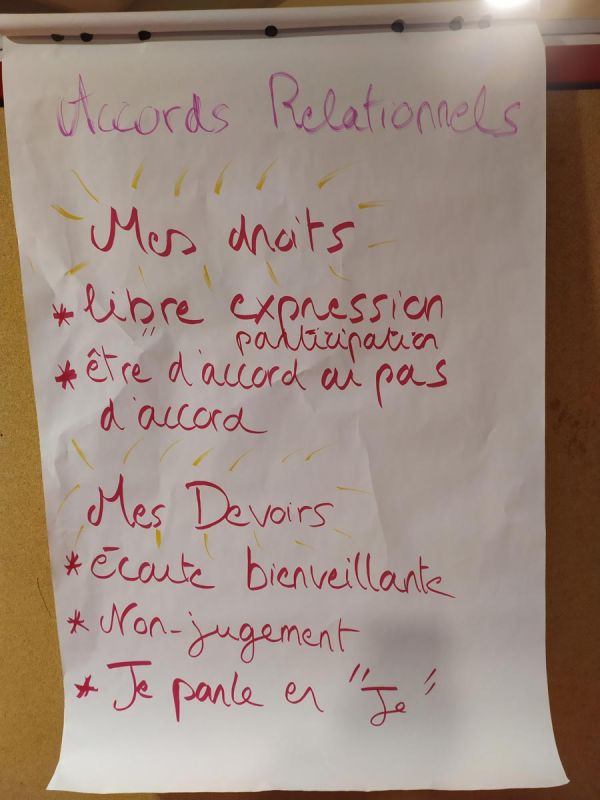 Accords Relationnels
Mes droits
* libre expression
" participation
* être d'accord ou pas
d'accord
Mes Devoirs
* Écoute bienveillante
* Non-jugement
* Je parle en "Je"